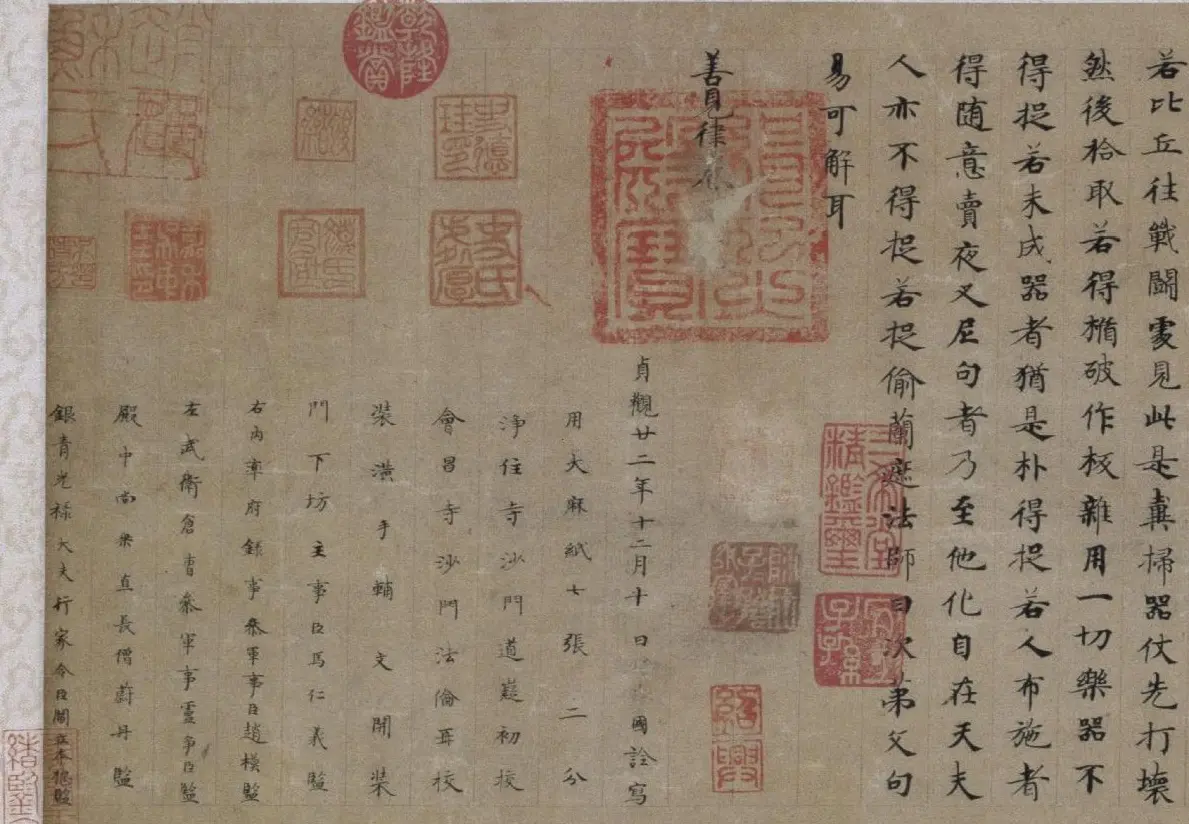 若比丘往戰鬪處見此是糞掃器仗先打壞
然後拾取若得楯破作板雜用一切樂器不
得捉若未成器者猶是朴得捉若人布施者
得随意賣夜叉屈句者乃至他化自在天夫
人亦不得捉若捉偷蘭遮法師曰次第文句
易可解耳
善見律
貞觀廿二年十二月十日 國詮寫
用大麻紙七張二分
淨住寺沙門道嶷初校
會昌寺沙門法倫再校
裝潢手輔文開裝
門下坊主事臣馬仁義監
右內率府錄事參軍事臣趙模監
左武衛倉曹參軍事臣 監
殿中尚乘直長僧蔚丹監
銀青光祿大夫行家令臣閻立本揔監
乾隆鑑賞
三希堂精鑑璽
宜子孫
紹興
史氏